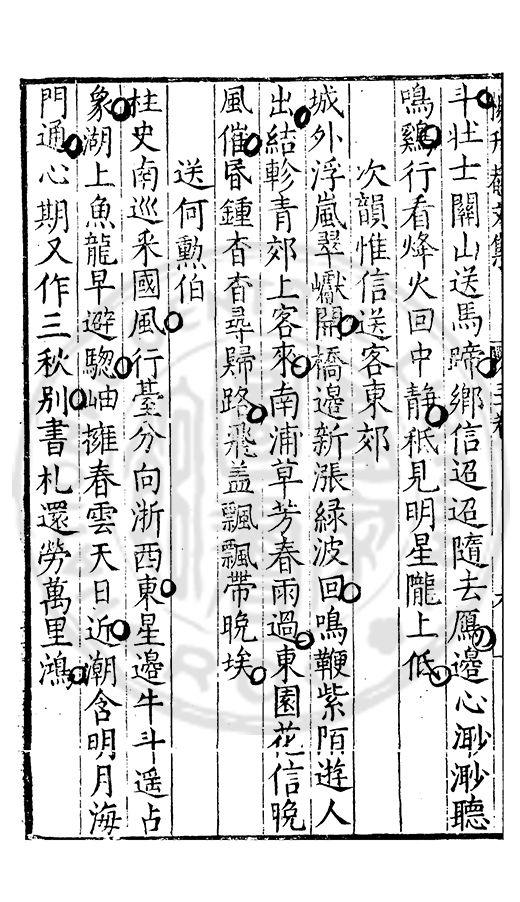 斗壮士關山送馬蹄鄉信迢迢隨去鴈邊心渺渺聽
鳴鷄行看烽火回中静秪見明星隴上低
次韻惟信送客東郊
城外浮嵐翠巘開橋邊新漲緑波回鳴鞭紫陌遊人
出結軫青郊上客來南浦草芳春雨過東園花信晚
風催昏鍾杳杳尋歸路飛盖飄飄帶晚埃
送何勲伯
柱史南巡采國風行臺分向浙西東星邊牛斗遥占
象湖上魚龍早避驄岫擁春雲天日近潮含明月海
門通心期又作三秋别書札還勞萬里鴻